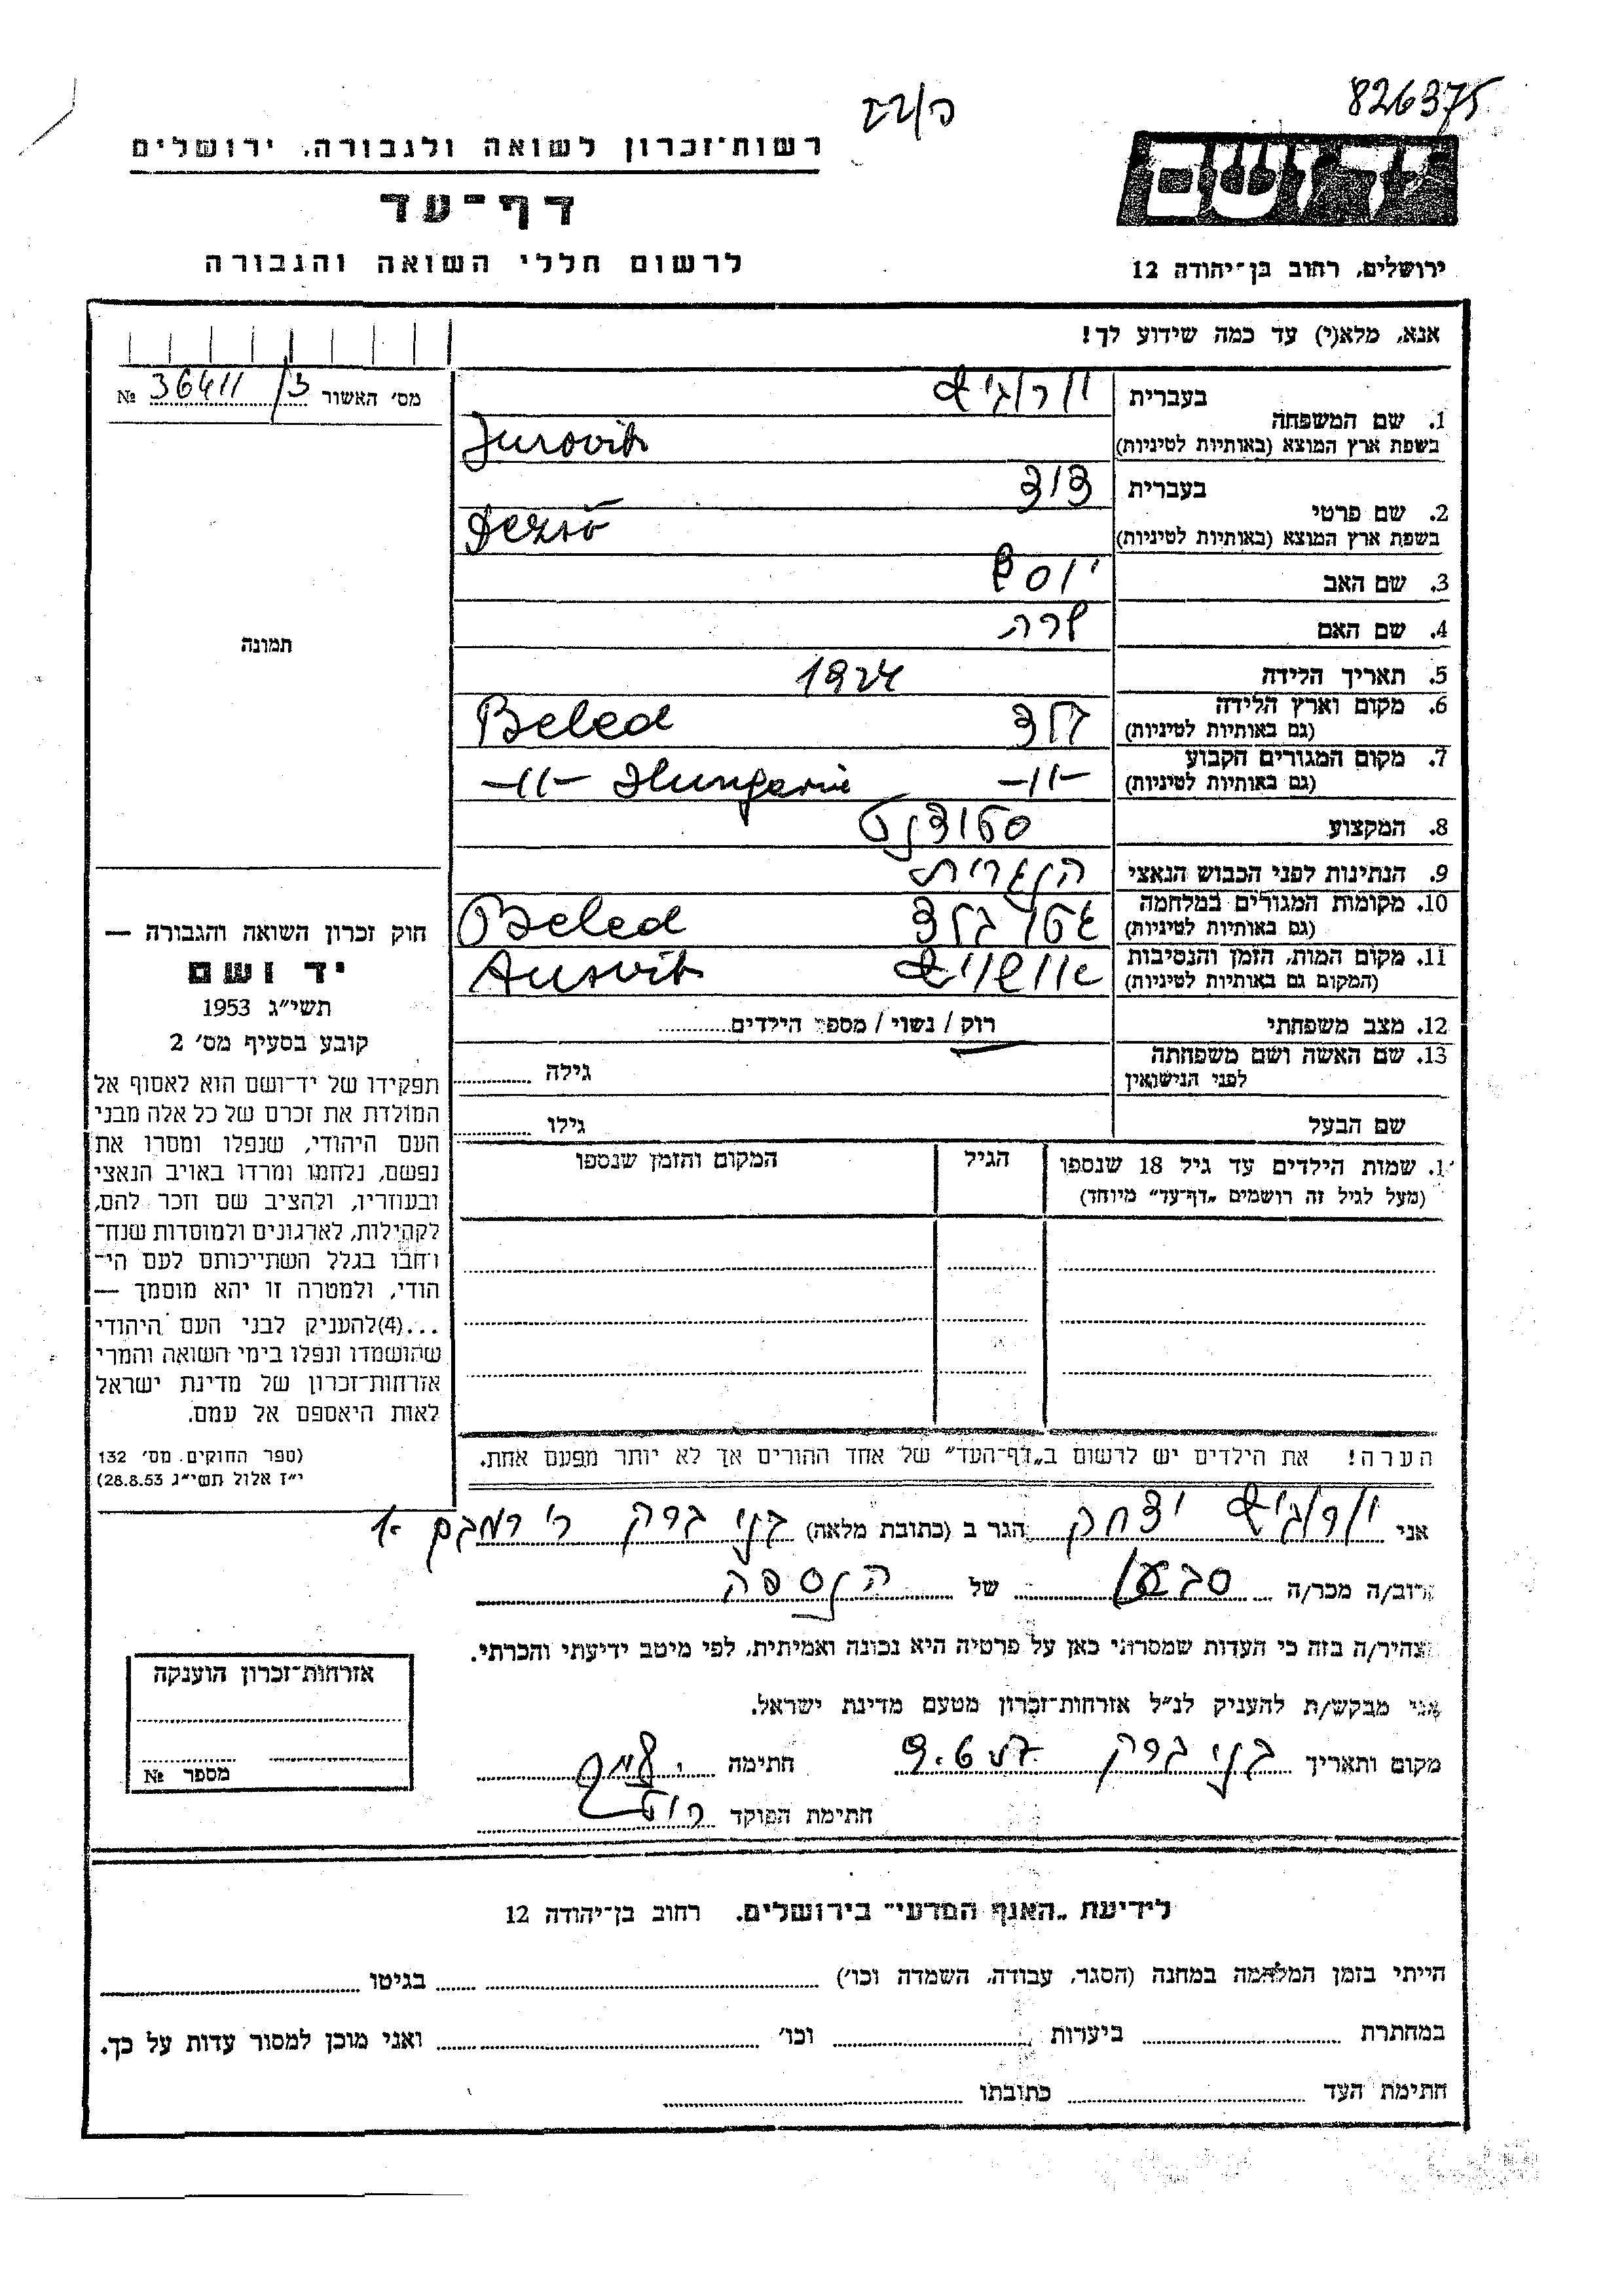 826375
רשות־זכרון לשואה ולגבורה, ירושלים
יד ושם
דף־עד
לרשום חללי השואה והגבורה
ירושלים, רחוב בן־יהודה 12
אנא, מלא(י) עד כמה שידוע לך!
מס׳ האשור № 36411/3
1. שם המשפחה
בעברית יורוביץ
בשפת ארץ המוצא (באותיות לטיניות) Jurovits
2. שם פרטי
בעברית דוד
בשפת ארץ המוצא (באותיות לטיניות) Dezső
3. שם האב יוסף
4. שם האם שרה
תמונה
5. תאריך הלידה 1924
6. מקום וארץ הלידה
(גם באותיות לטיניות) בלד Beled
7. מקום המגורים הקבוע
(גם באותיות לטיניות) -״- -״- Hungaria
8. המקצוע סטודנט
9. הנתינות לפני הכבוש הנאצי הונגרית
10. מקומות המגורים במלחמה
(גם באותיות לטיניות) גטו בלד Beled
11. מקום המות, הזמן והנסיבות
(המקום גם באותיות לטיניות) אוושוויץ Ausvits
12. מצב משפחתי רוק / נשוי / מספר הילדים
13. שם האשה ושם משפחתה
לפני הנישואין גילה
שם הבעל גילו
1. שמות הילדים עד גיל 18 שנספו
(מעל לגיל זה רושמים „דף־עד״ מיוחד)
הגיל
המקום והזמן שנספו
הערה! את הילדים יש לרשום ב„דף־העד״ של אחד ההורים אך לא יותר מפעם אחת.
חוק זכרון השואה והגבורה —
יד ושם
תשי״ג 1953
קובע בסעיף מס׳ 2
תפקידו של יד־ושם הוא לאסוף אל
המולדת את זכרם של כל אלה מבני
העם היהודי, שנפלו ומסרו את
נפשם, נלחמו ומרדו באויב הנאצי
ובעוזריו, ולהציב שם וזכר להם,
לקהילות, לארגונים ולמוסדות שנח־
רבו בגלל השתייכותם לעם הי־
הודי, ולמטרה זו יהא מוסמך —
...(4) להעניק לבני העם היהודי
שהושמדו ונפלו בימי השואה והמרי
אזרחות־זכרון של מדינת ישראל
לאות היאספם אל עמם.
(ספר החוקים, מס׳ 132
י״ז אלול תשי״ג 28.8.53)
אני יורוביץ יצחק הגר ב (כתובת מלאה) בני ברק ר׳ רמבם
קרוב/ה מכר/ה של הנספה
מצהיר/ה בזה כי העדות שמסרתי כאן על פרטיה היא נכונה ואמיתית, לפי מיטב ידיעתי והכרתי.
אני מבקש/ת להעניק לנ״ל אזרחות־זכרון מטעם מדינת ישראל.
מקום ותאריך בני ברק 9.6.57 חתימה
חתימת הפוקד
אזרחות־זכרון הוענקה
מספר №
לידיעת „האגף המדעי״ בירושלים, רחוב בן־יהודה 12
הייתי בזמן המלחמה במחנה (הסגר, עבודה, השמדה וכו׳) בגיטו
במחתרת ביערות וכו׳ ואני מוכן למסור עדות על כך.
חתימת העד כתובתו